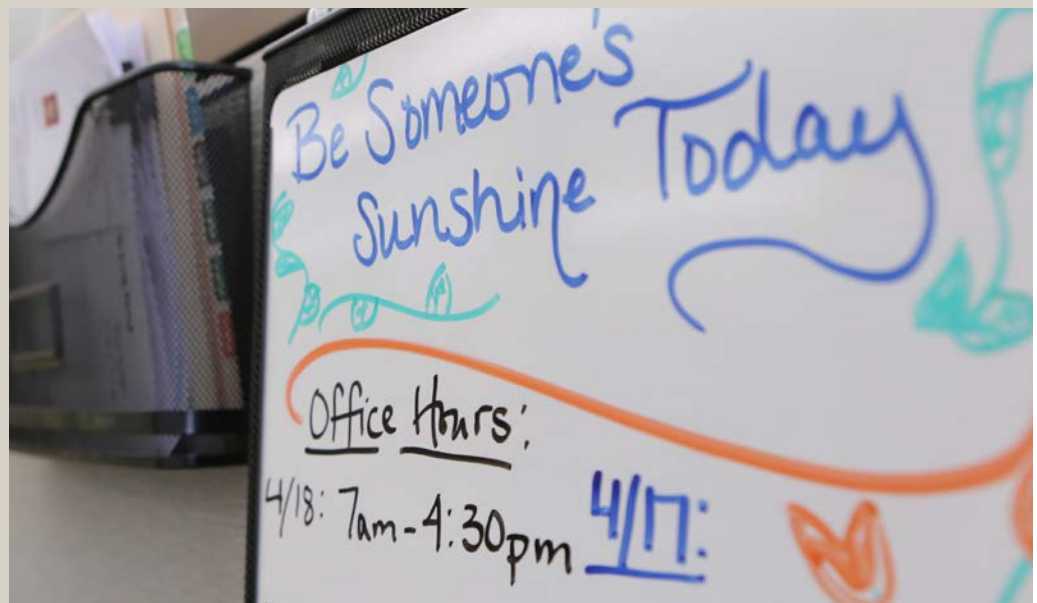 Be Someone's
Sunshine Today
Office Hours:
4/18: 7am-4:30pm
4/17: